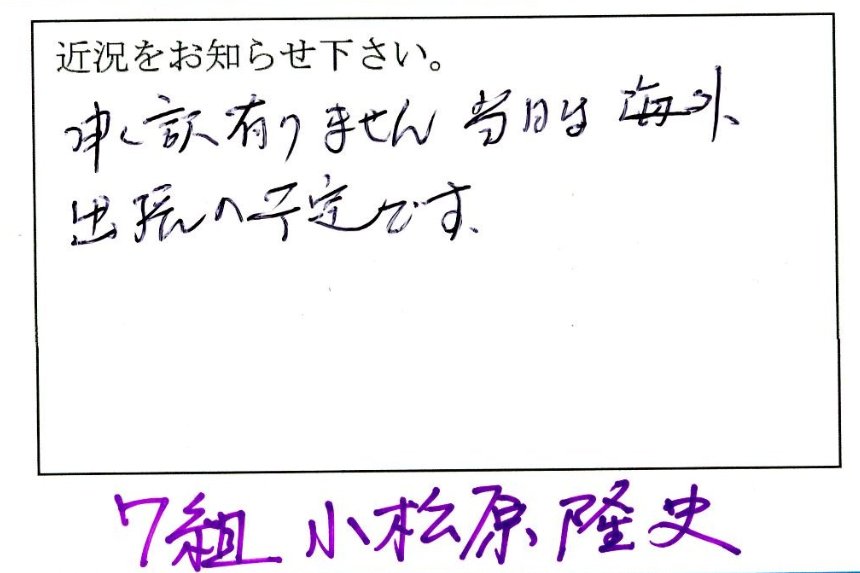 近況をお知らせ下さい。
申し訳有りません 当日は 海外、
出張の予定です、
7組 小松原 隆史